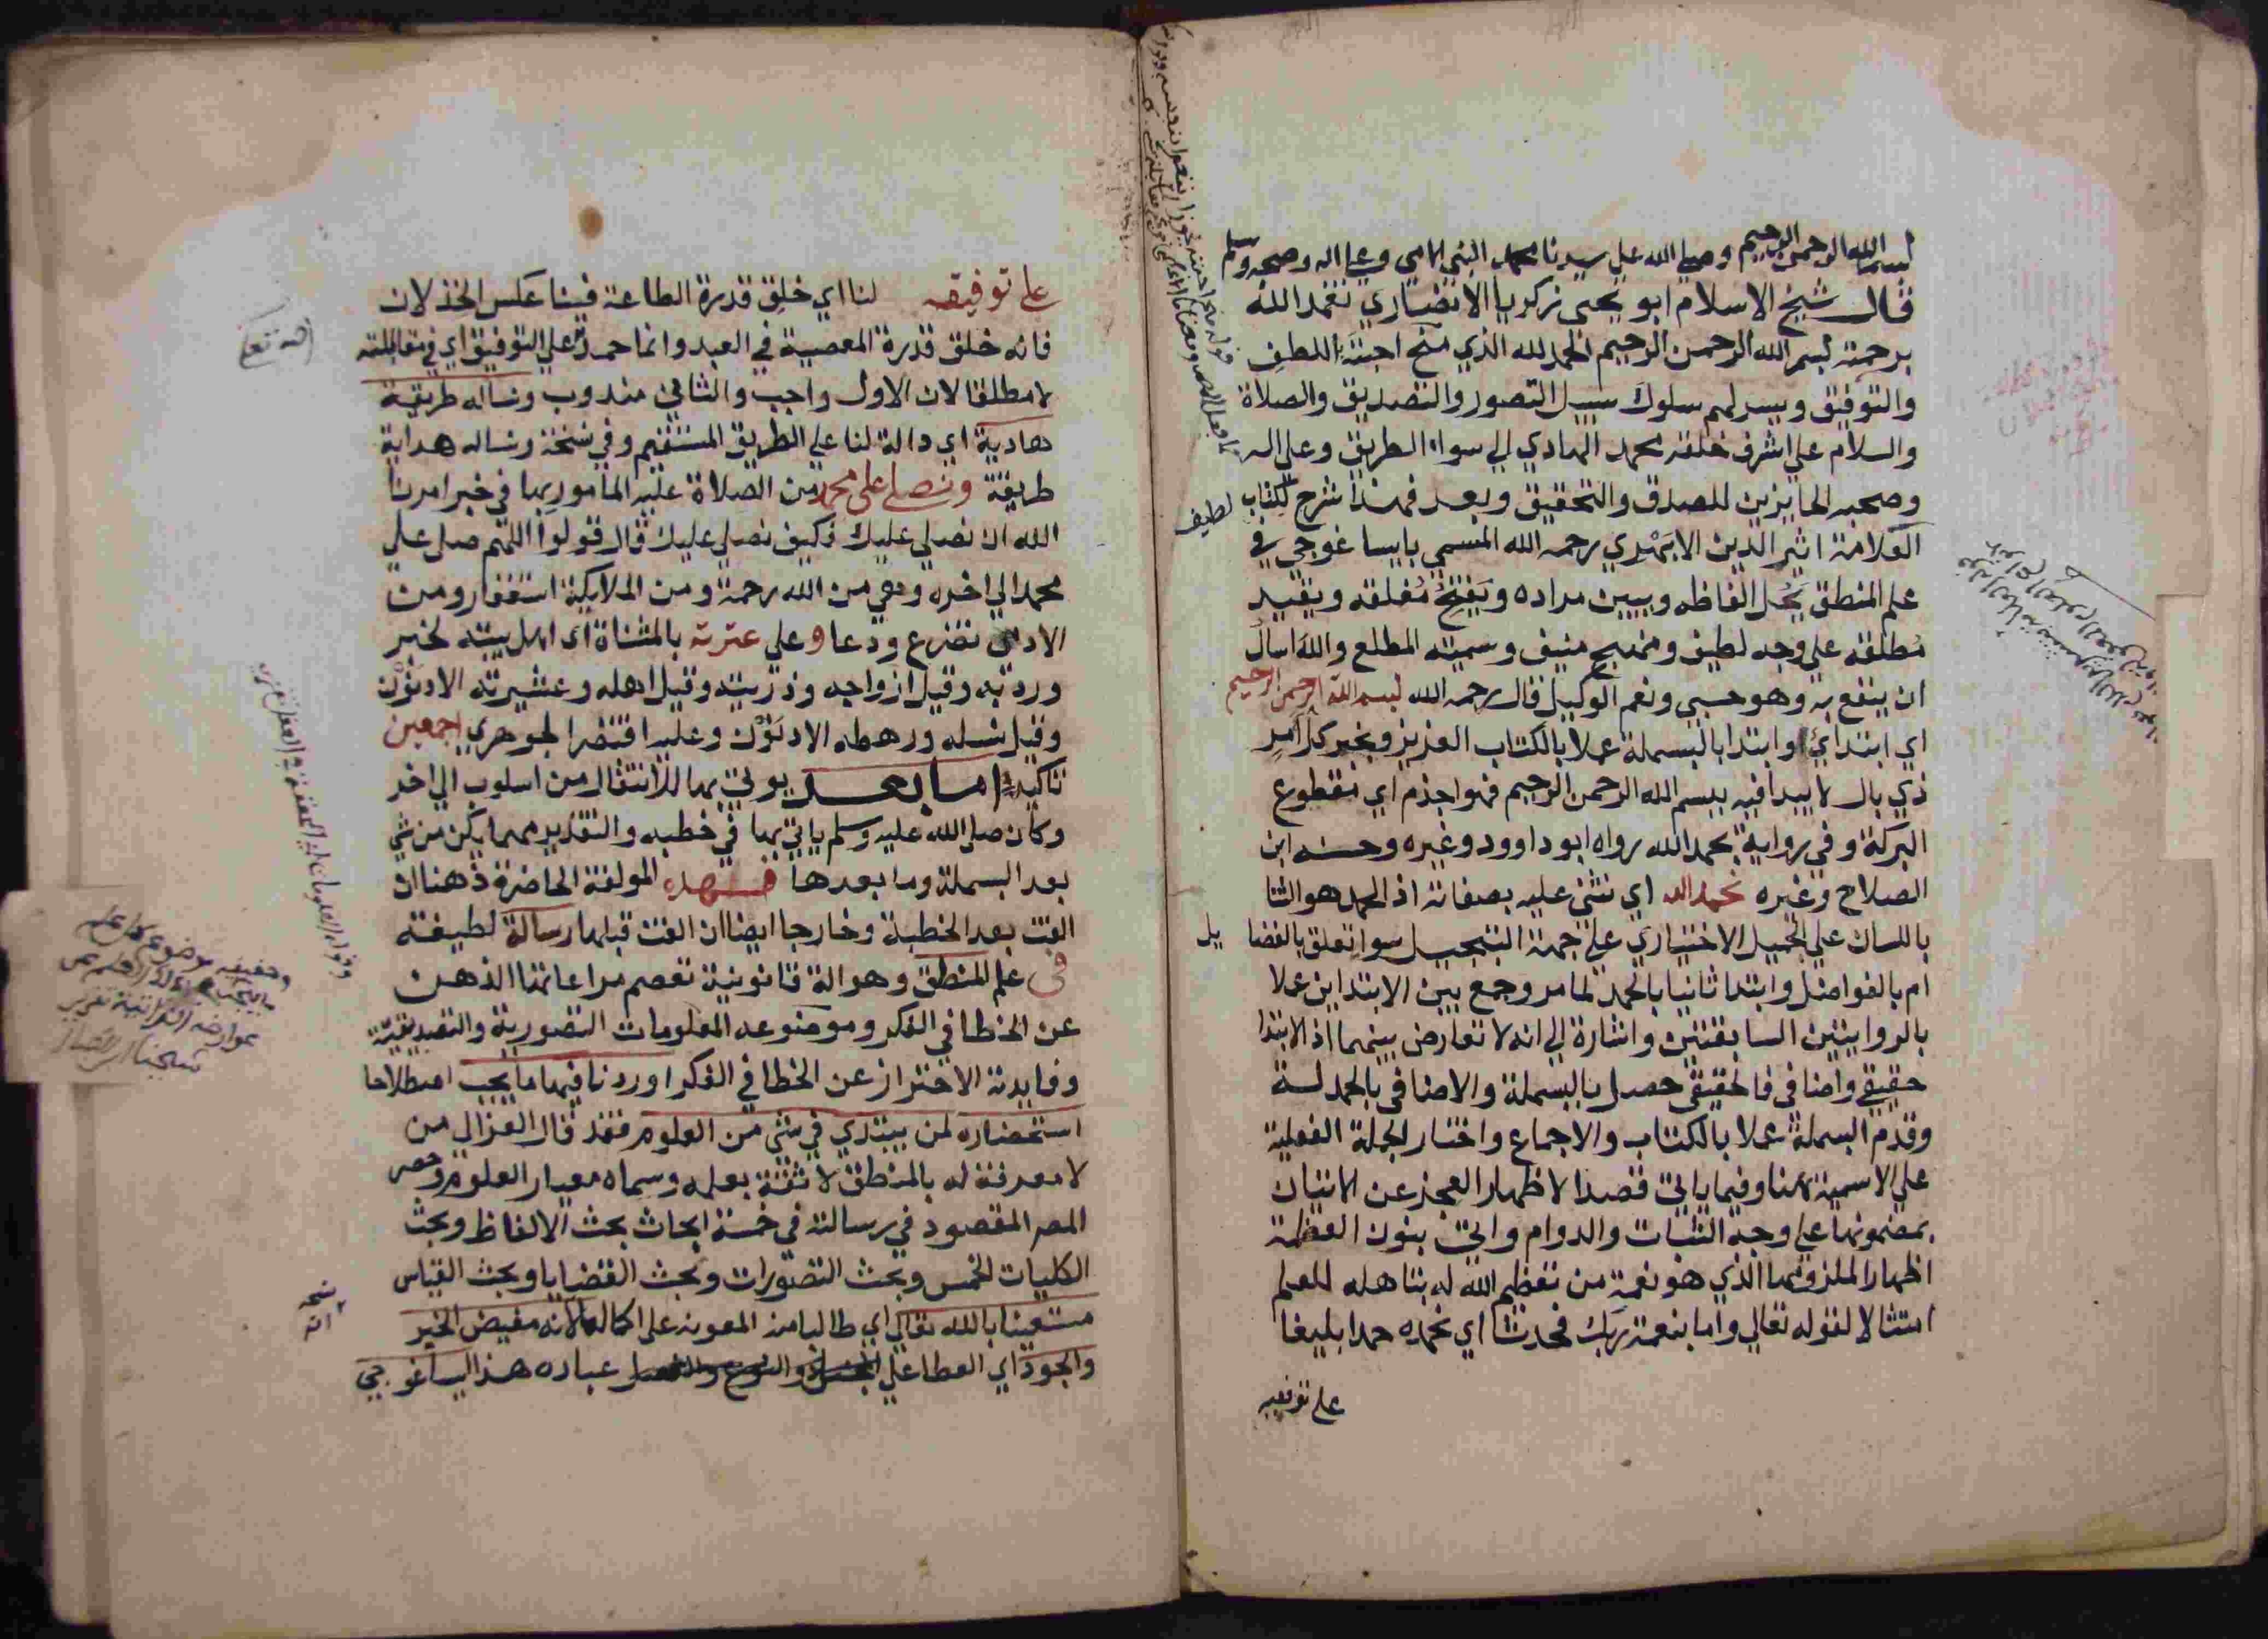 بسم الله الرحمن الرحيم وصلي الله علي سيدنا محمد النبي الامي وعلي اله وصحبه وسلم
قال شيخ الاسلام ابو يحيى زكريا الانصاري تغمده الله
برحمته بسم الله الرحمن الرحيم الحمد لله الذي منح احبته باللطف
والتوفيق ويسر لهم سلوك سبيل التصور والتصديق والصلاة
والسلام علي اشرف خلقه محمد الهادي الي سواء الطريق وعلي اله
وصحبه الحايزين للصدق والتحقيق وبعد فهذا شرح لكتاب
لطيف
العلامة اثير الدين الابهري رحمه الله المسمي بايساغوجي في
علم المنطق يحل الفاظه ويبين مراده ويفتح مغلقه ويقيد
مطلقه علي وجه لطيف ومنهج منيف وسميته المطلع والله اسال
ان ينفع به وهو حسبي ونعم الوكيل قال رحمه الله بسم الله الرحمن الرحيم
اي ابتدائ او ابتدا بالبسملة عملا بالكتاب العزيز وبخبر كل امر
ذي بال لا يبدا فيه ببسم الله الرحمن الرحيم فهو اجذم اي مقطوع
البركة وفي رواية بحمد الله رواه ابو داوود وغيره وحسنه ابن
الصلاح وغيره نحمد الله اي نثني عليه بصفاته اذ الحمد هو الثنا
باللسان علي الجميل الاختياري علي جهة التبجيل سوا تعلق بالفضا يل
ام بالفواضل وابتدا ثانيا بالحمد لما مر وجمع بين الابتداين عملا
بالروايتين السابقتين واشارة الي انه لا تعارض بينهما اذ الابتدا
حقيقي واضافي فالحقيقي حصل بالبسملة والاضافي بالحمدلة
وقدم البسملة عملا بالكتاب والاجماع واختار الجملة الفعلية
علي الاسمية هنا وفيما ياتي قصدا لاظهار العجز عن الاتيان
بمضمونها علي وجه الثبات والدوام واتي بنون العظمة
اظهارا لملزومها الذي هو نعمة من تعظيم الله له بتاهله للعلم
امتثالا لقوله تعالي واما بنعمة ربك فحدث اي نحمده حمدا بليغا
علي توفيقه
علي توفيقه لنا اي خلق قدرة الطاعة فينا عكس الخذلان
فانه خلق قدرة المعصية في العبد وانما حمد علي التوفيق اي في مقابلته
لا مطلقا لان الاول واجب والثاني مندوب ونساله طريقة
هادية اي دالة لنا علي الطريق المستقيم وفي نسخة ونساله هداية
طريقة ونصلي على محمد من الصلاة عليه المامور بها في خبر امرنا
الله ان نصلي عليك فكيف نصلي عليك قال قولوا اللهم صل علي
محمد الي اخره وهي من الله رحمة ومن الملايكة استغفار ومن
الادمي تضرع ودعا وعلي عترته بالمثناة اي اهل بيته لخبر
ورد به وقيل ازواجه وذريته وقيل اهله وعشيرته الادنون
وقيل نسله ورهطه الادنون وعليه اقتصر الجوهري اجمعين
تاكيد اما بعد يوتي بها للانتقال من اسلوب الي اخر
وكان صلي الله عليه وسلم ياتي بها في خطبه والتقدير مهما يكن من شي
بعد البسملة وما بعدها فهذه المولفة الحاضرة ذهنا ان
الفت بعد الخطبة وخارجا ايضا ان الفت قبلها رسالة لطيفة
في علم المنطق وهو الة قانونية تعصم مراعاتها الذهن
عن الخطا في الفكر وموضوعه المعلومات التصورية والتصديقية
وفايدته الاحتراز عن الخطا في الفكر اوردنا فيها ما يجب اصطلاحا
استحضاره لمن يبتدي في شي من العلوم فقد قال الغزالي من
لا معرفة له بالمنطق لا ثقة بعلمه وسماه معيار العلوم وحصر
المص المقصود في رسالته في خمسة ابحاث بحث الالفاظ وبحث
الكليات الخمس وبحث التصورات وبحث القضايا وبحث القياس
مستعينا بالله تعالي اي طالبا منه المعونة على اكمالها لانه مفيض الخير
والجود اي العطا علي عباده هذا ايساغوجي